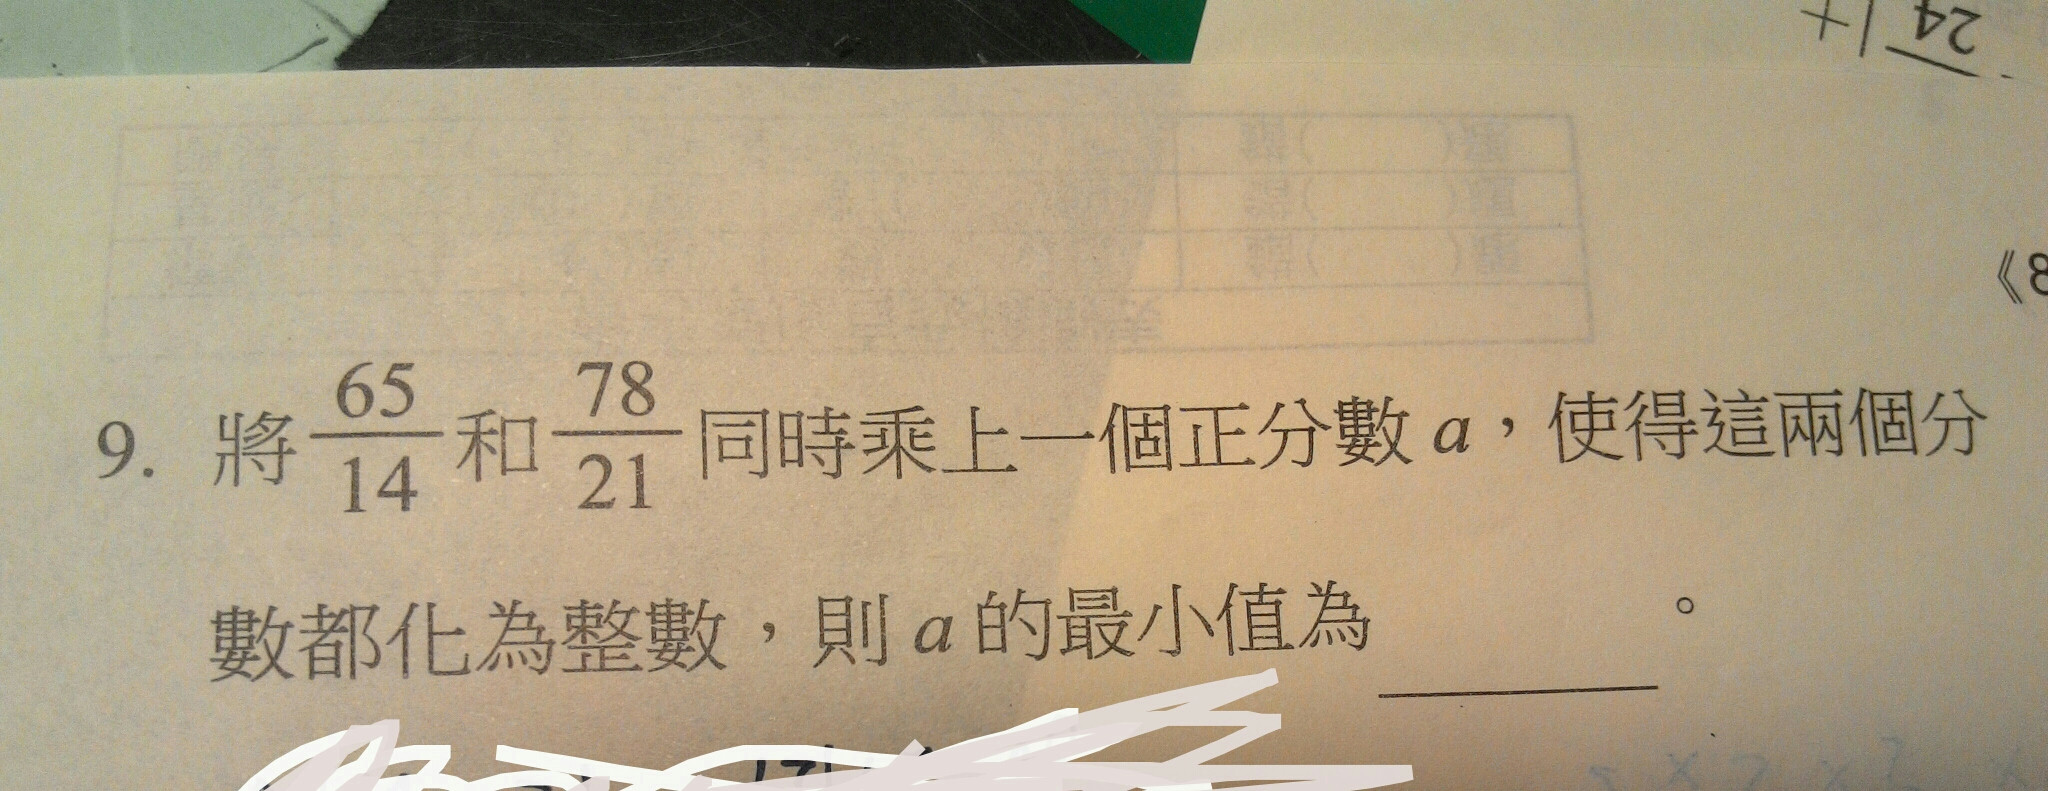 24
《8
9. 將 65/14 和 78/21 同時乘上一個正分數 a，使得這兩個分
數都化為整數，則 a 的最小值為______。